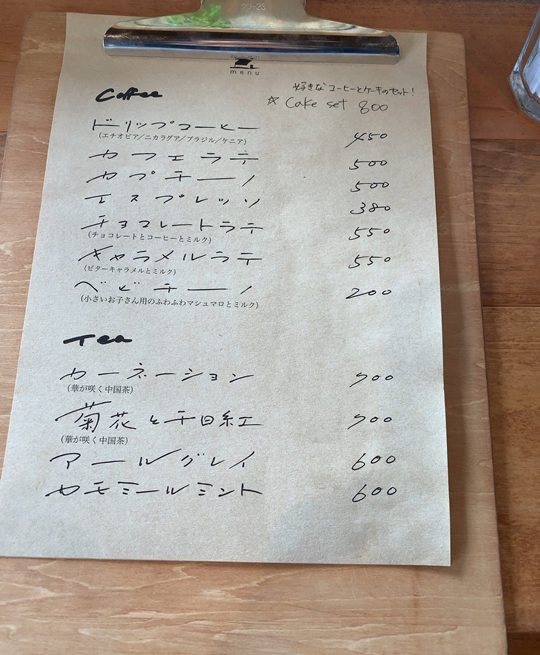 menu
Coffee
好きなコーヒーとケーキのセット!
☆ Cake set 800
ドリップコーヒー 450
(エチオピア/ニカラグア/ブラジル/ケニア)
カフェラテ 500
カプチーノ 500
エスプレッソ 380
チョコレートラテ 550
(チョコレートとコーヒーとミルク)
キャラメルラテ 550
(ビターキャラメルとミルク)
ベビチーノ 200
(小さいお子さん用のふわふわマシュマロとミルク)
Tea
カーネーション 700
(華が咲く中国茶)
菊花と千日紅 700
(華が咲く中国茶)
アールグレイ 600
カモミールミント 600